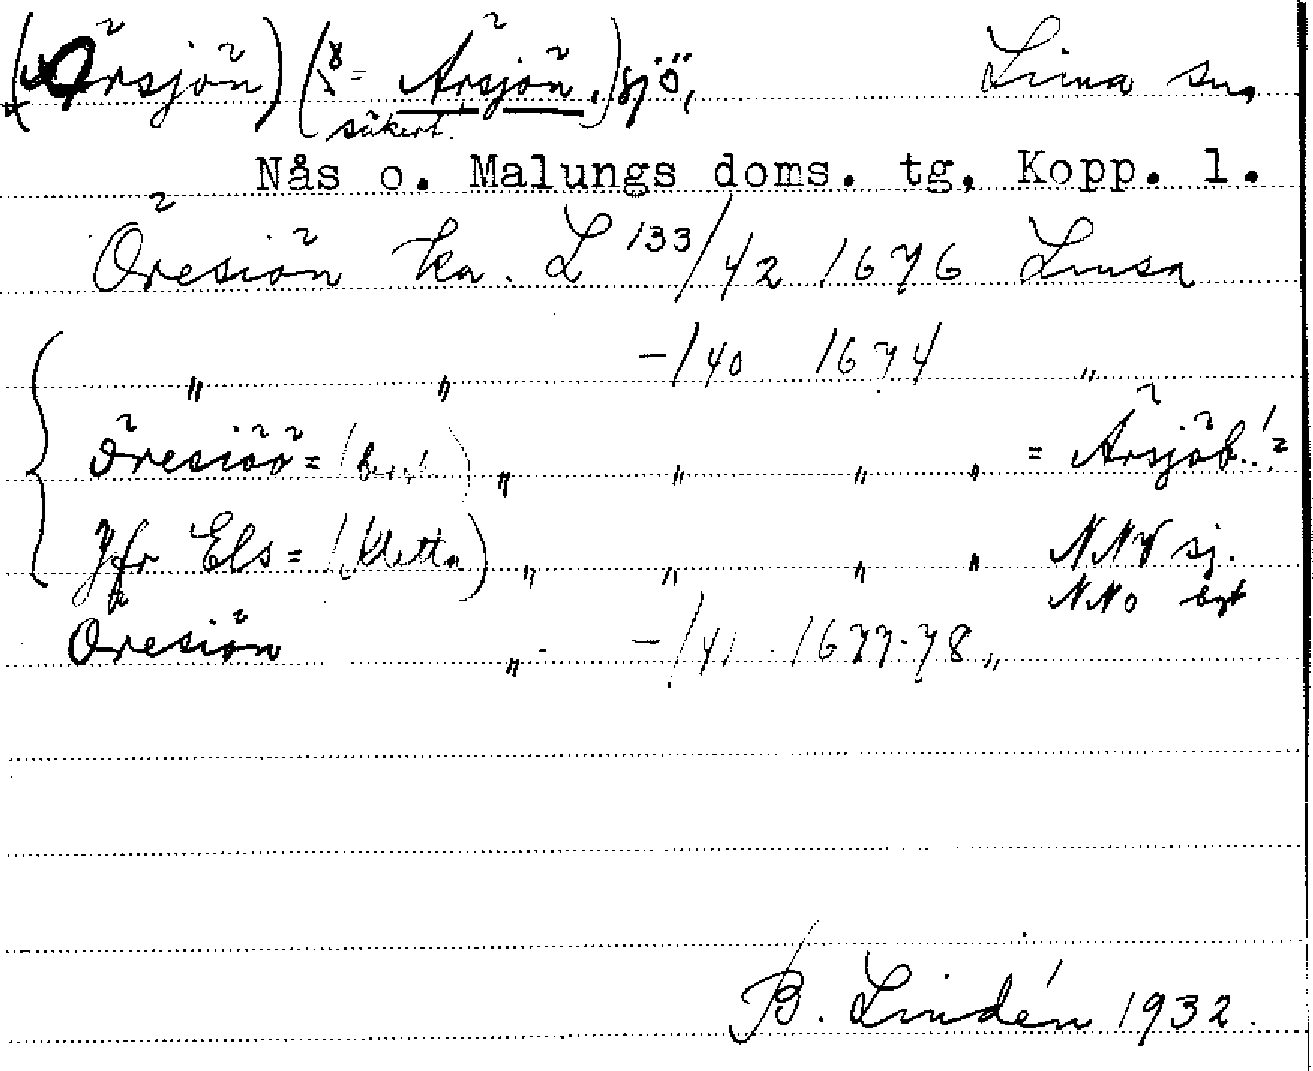 (Örsjön) (= Ärsjön.) sjö, Lima sn,
säkert.
Nås o. Malungs doms. tg, Kopp. l.
Öresiön ka. L 133/42 1676 Limsa
" " -/40 1674 "
Öresiöö= (berg) " " " " = Ärsjöb.!
Jfr Els= (kletta) " " " " NNV sj.
NNO bgt
Öresiön " -/41 1677-78 "
B. Lindén 1932.